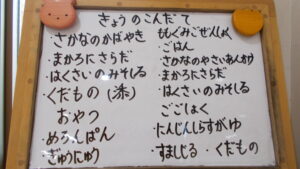 きょうのこんだて
・さかなのかばやき
・まかろにさらだ
・はくさいのみそしる
・くだもの
おやつ
めろんぱん
・ぎゅうにゅう
・ごはん
・さかなのやさいあんかけ
・まかろにさらだ
・はくさいのみそしる
ごごしょく
・にんじんしらすがゆ
・すましじる・くだもの